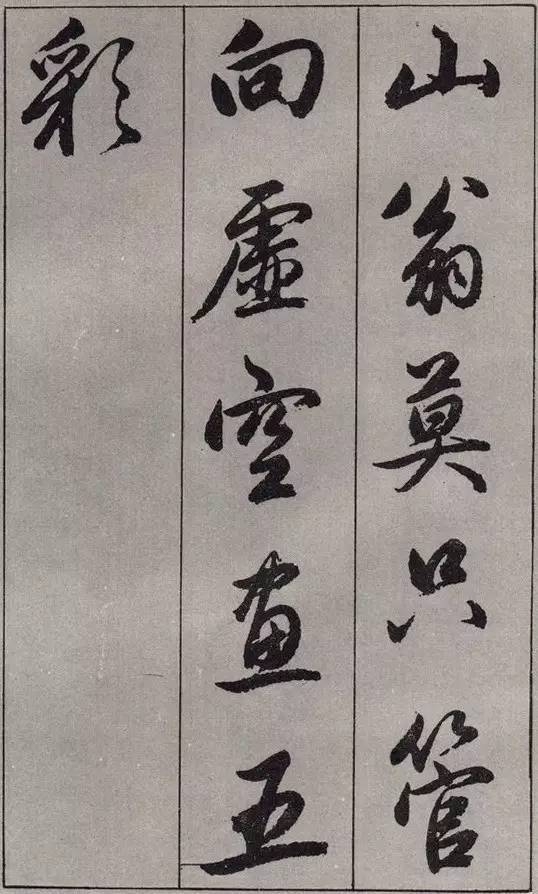 山翁莫只管
向虛空畫五
彩